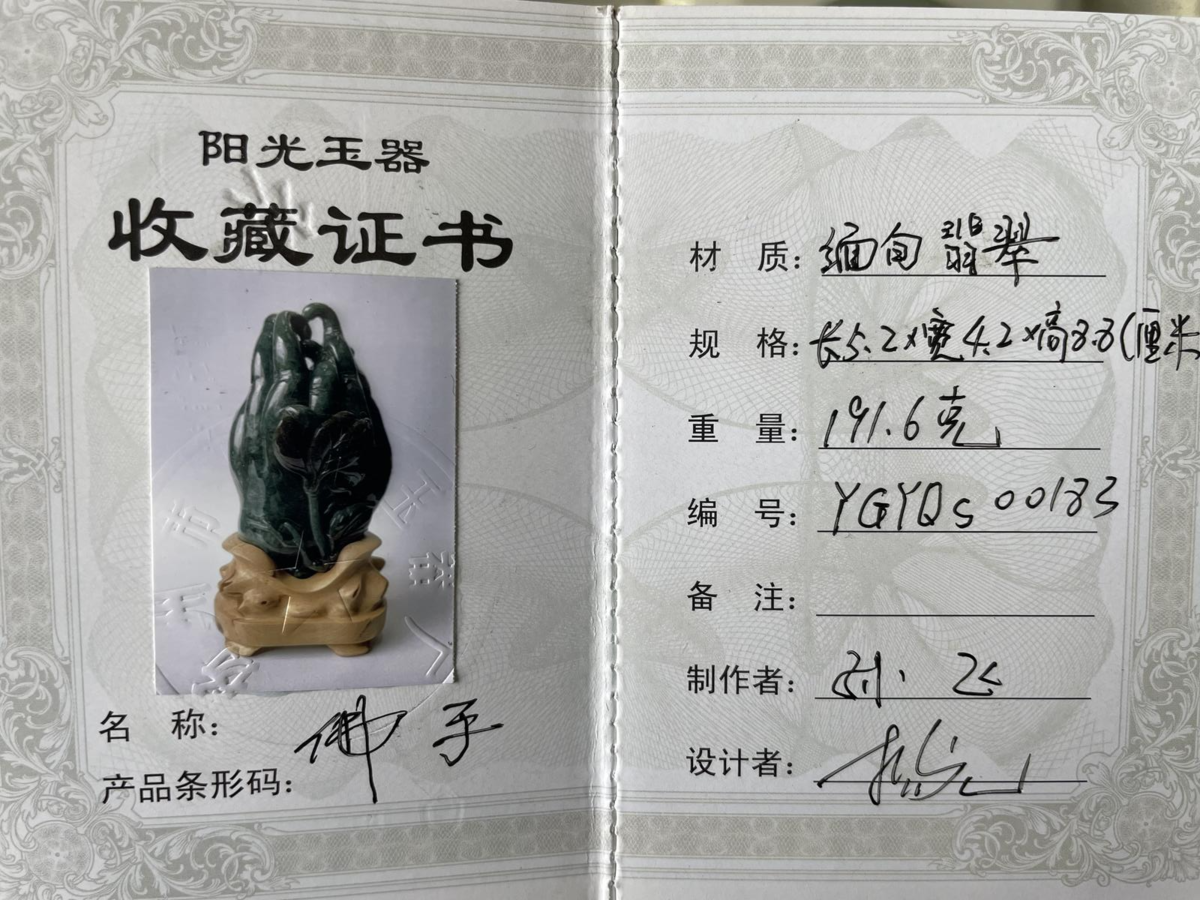 阳光玉器
收藏证书
名 称: 佛手
产品条形码:
材 质: 缅甸翡翠
规 格: 长5.2×宽4.2×高8.8(厘米
重 量: 191.6克
编 号: YGYQs00183
备 注:
制作者: 孙飞
设计者: